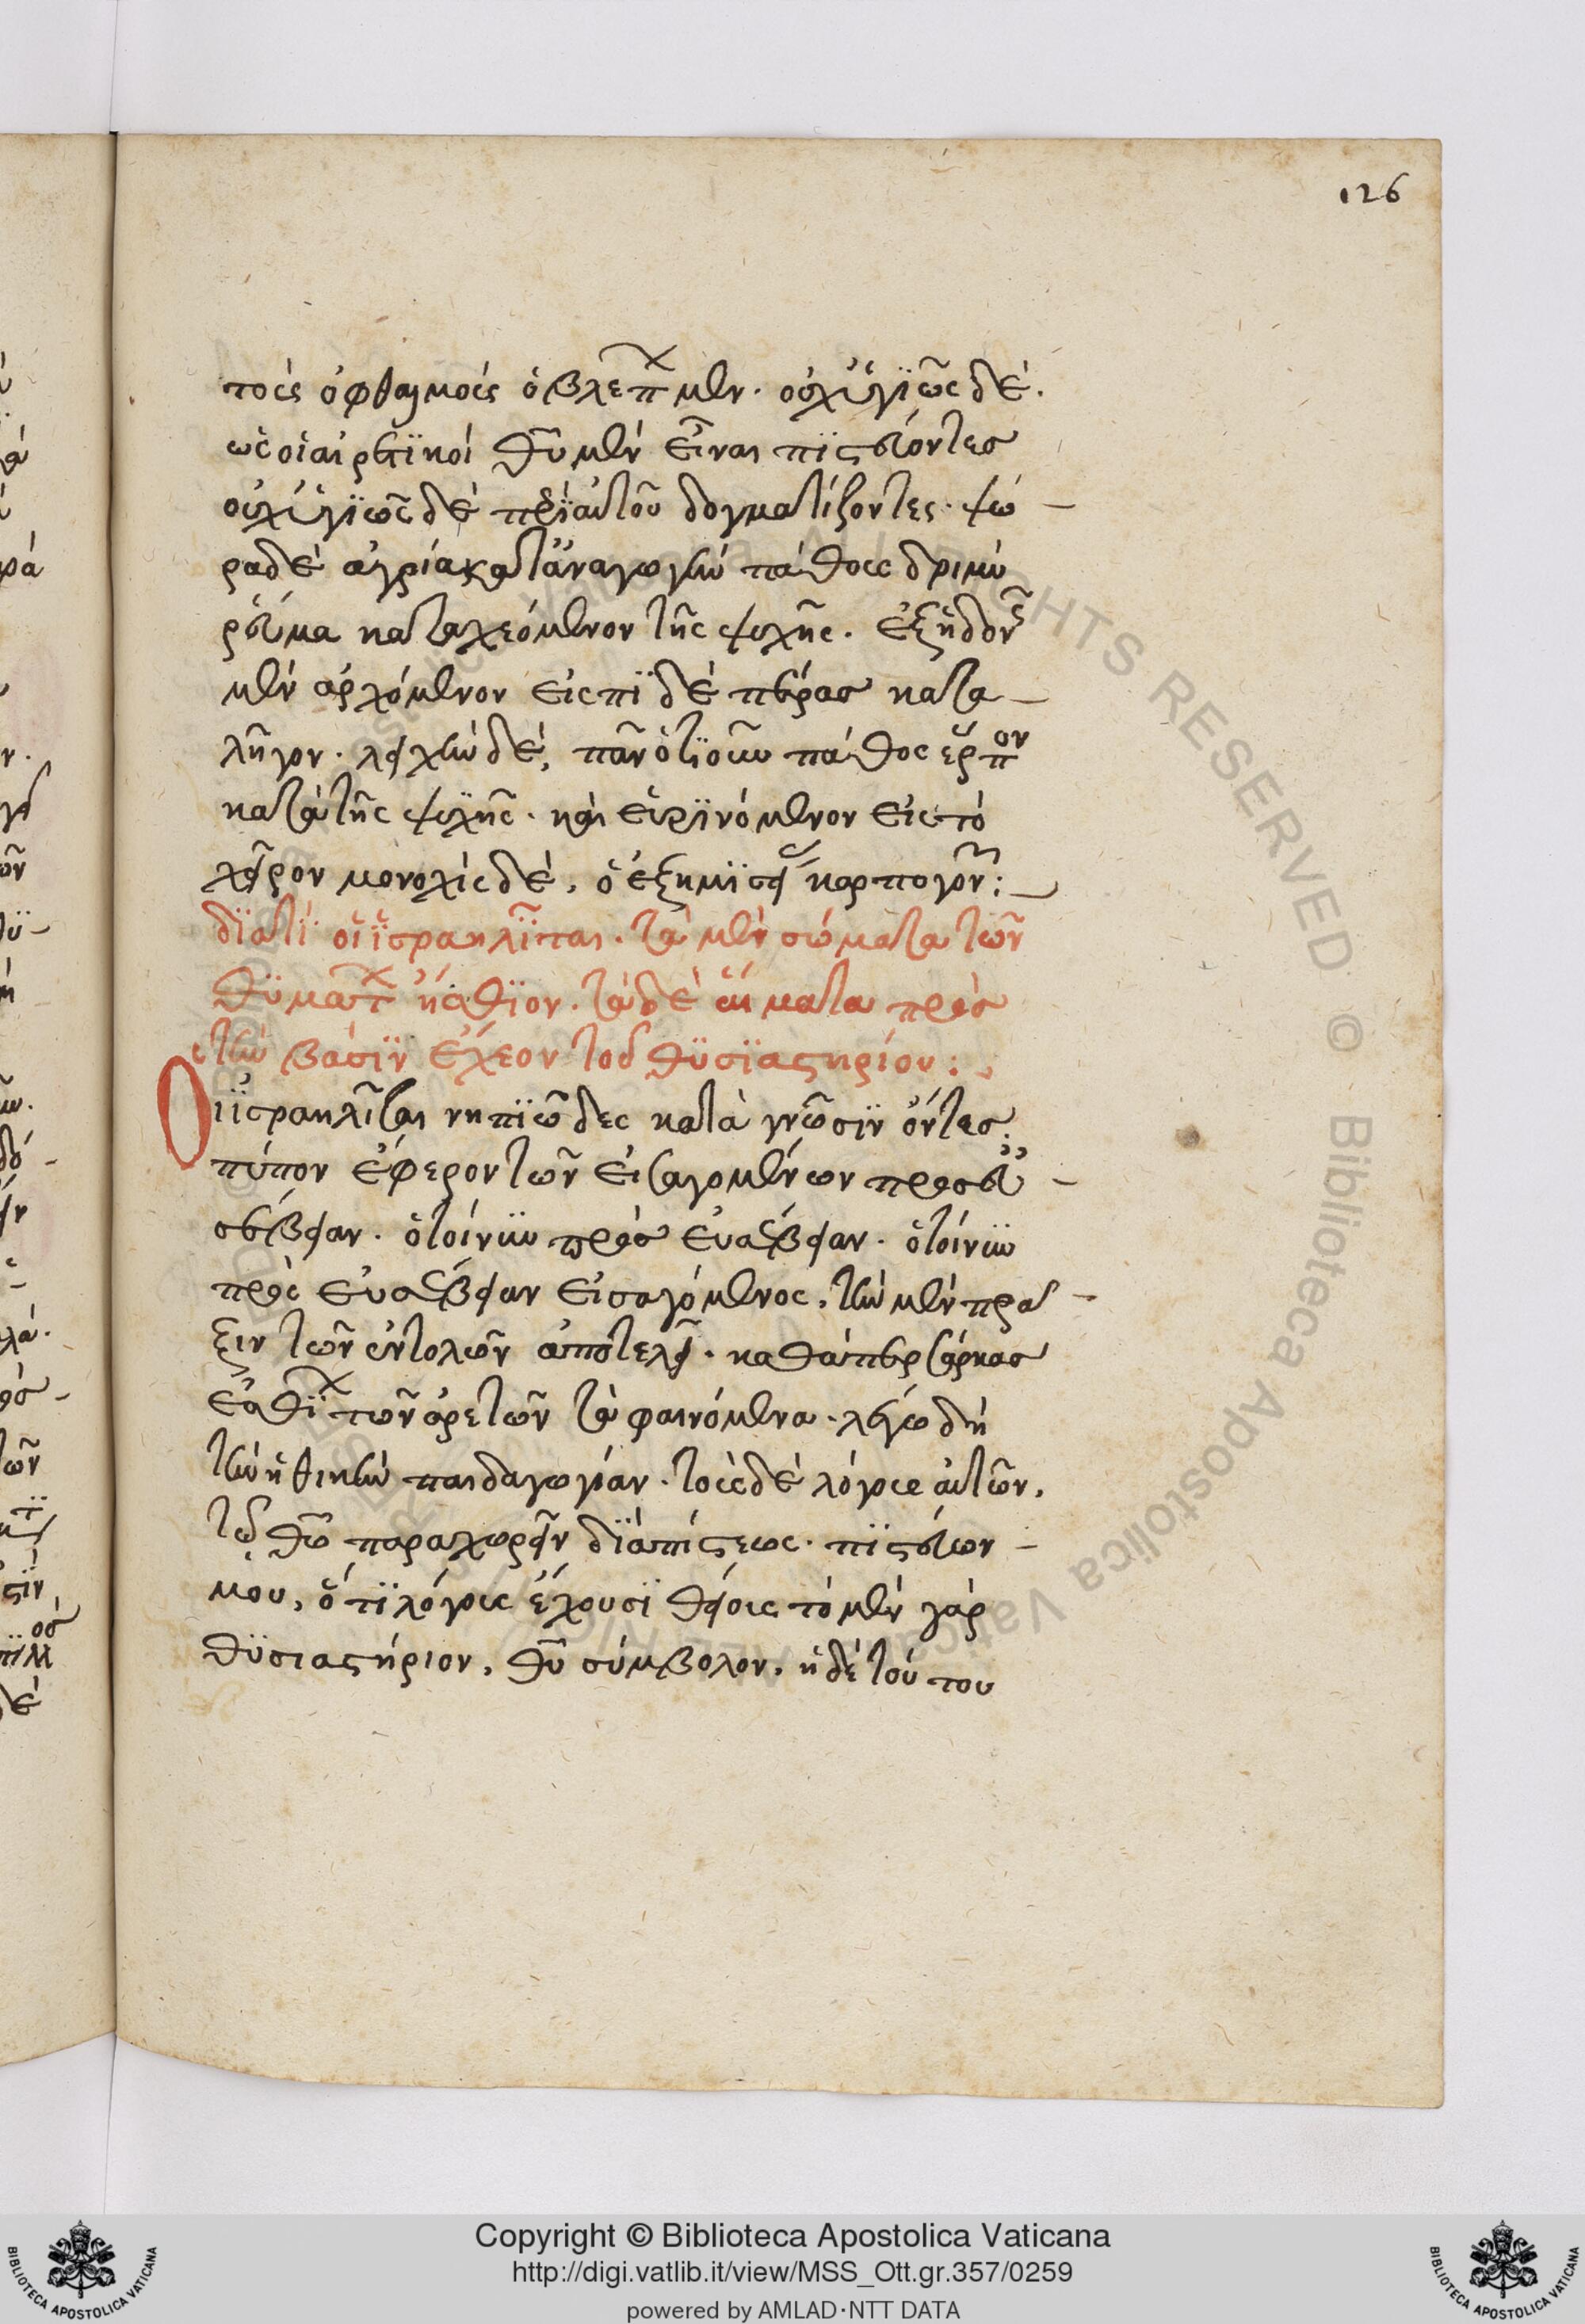 126
τοὺς ὀφθαλμοὺς ὁ βλέπων μὲν. οὐχ ὑγιῶς δέ.
ὡς οἱ αἱρετικοὶ θν̅ μὲν εἶναι πιστεύοντες
οὐχ ὑγιῶς δὲ περὶ αὐτοῦ δογματίζοντες. ψώ-
ρα δὲ ἀγρία κατ' ἀναγωγὴν πάθους δριμὺ
ῥεῦμα καταχεόμενον τῆς ψυχῆς. ἐξ ἡδονῆς
μὲν ἀρχόμενον εἰς πι δὲ πέρας κατα-
λῆγον. λειχὴν δέ, πᾶν ὁτιοῦν πάθος ἕρπον
κατὰ τῆς ψυχῆς. καὶ εὑρινόμενον εἰς τὸ
χεῖρον μόνορχις δέ, ὁ ἐξ ἡμισείας καρπογον:
διατί οἱ ἰσραηλῖται. τὰ μὲν σώματα τῶν
θυμάτων ἤσθιον. τὰ δὲ αἵματα πρὸς
τὴν βάσιν ἔχεον τοῦ θυσιαστηρίου:
Οἱ ἰσραηλῖται νηπιώδες κατὰ γνῶσιν ὄντες.
τύπον ἔφερον τῶν εἰσαγομένων πρὸς εὐ-
σέβειαν. ὁ τοίνυν πρὸς εὐσέβειαν. ὁ τοίνυν
πρὸς εὐσέβειαν εἰσαγόμενος, τὴν μὲν πρᾶ-
ξιν τῶν ἐντολῶν ἀποτελεῖ. καθάπερ σάρκας
ἐσθίων τῶν ἀρετῶν τὰ φαινόμενα. λέγω δὴ
τὴν ἠθικὴν παιδαγωγίαν. τοὺς δὲ λόγους αὐτῶν,
τῷ θω̅ παραχωρεῖν διὰ πίστεως. πιστεύων
μου, ὅτι λόγους ἔχουσι θείους τὸ μὲν γὰρ
θυσιαστήριον, θυ̅ σύμβολον, ἡ δὲ τούτου
Copyright © Biblioteca Apostolica Vaticana
http://digi.vatlib.it/view/MSS_Ott.gr.357/0259
powered by AMLAD·NTT DATA